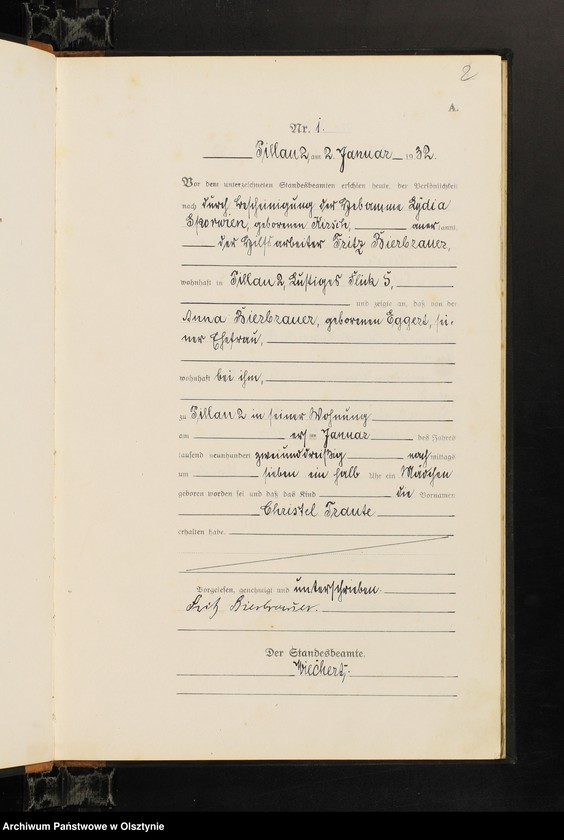 2
A.
Nr. 1.
Pillau 2, am 2. Januar 1932.
Vor dem unterzeichneten Standesbeamten erschien heute, der Persönlichkeit
nach durch Bescheinigung der Hebamme Lydia
geborenen Kirsch, aner kannt,
der Hilfsarbeiter Fritz Bierbrauer,
wohnhaft in Pillau 2, Lustiges Flick 5,
und zeigte an, daß von der
Anna Bierbrauer, geborenen Eggert, sei-
ner Ehefrau,
wohnhaft bei ihm,
zu Pillau 2 in seiner Wohnung
am ersten Januar des Jahres
tausend neunhundert zweiunddreißig nach mittags
um sieben ein halb Uhr ein Mädchen
geboren worden sei und daß das Kind die Vornamen
Christel Traute
erhalten habe.
Vorgelesen, genehmigt und unterschrieben.
Fritz Bierbrauer.
Der Standesbeamte.
Wiechert.
Archiwum Państwowe w Olsztynie